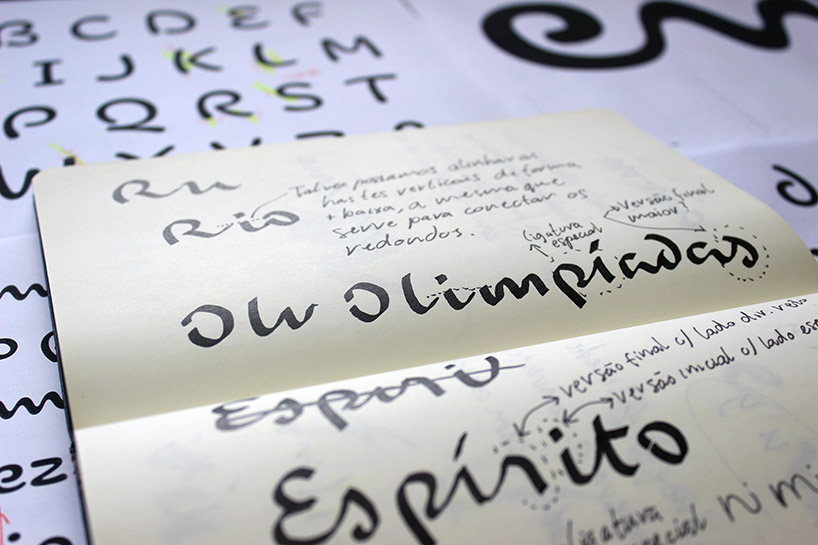 B C D E F
I J K L M
P Q R S T
Ru
Rio
Talvez possamos alinhar as
hastes verticais de forma
+ baixa, a mesma que
serve para conectar os
redondos.
ligatura
especial
versão final
maior?
Olu Olimpíadas
Espírit
versão final c/ lado dir. reto
versão inicial c/ lado es
Espírito
ligatura
ni mi
ezi